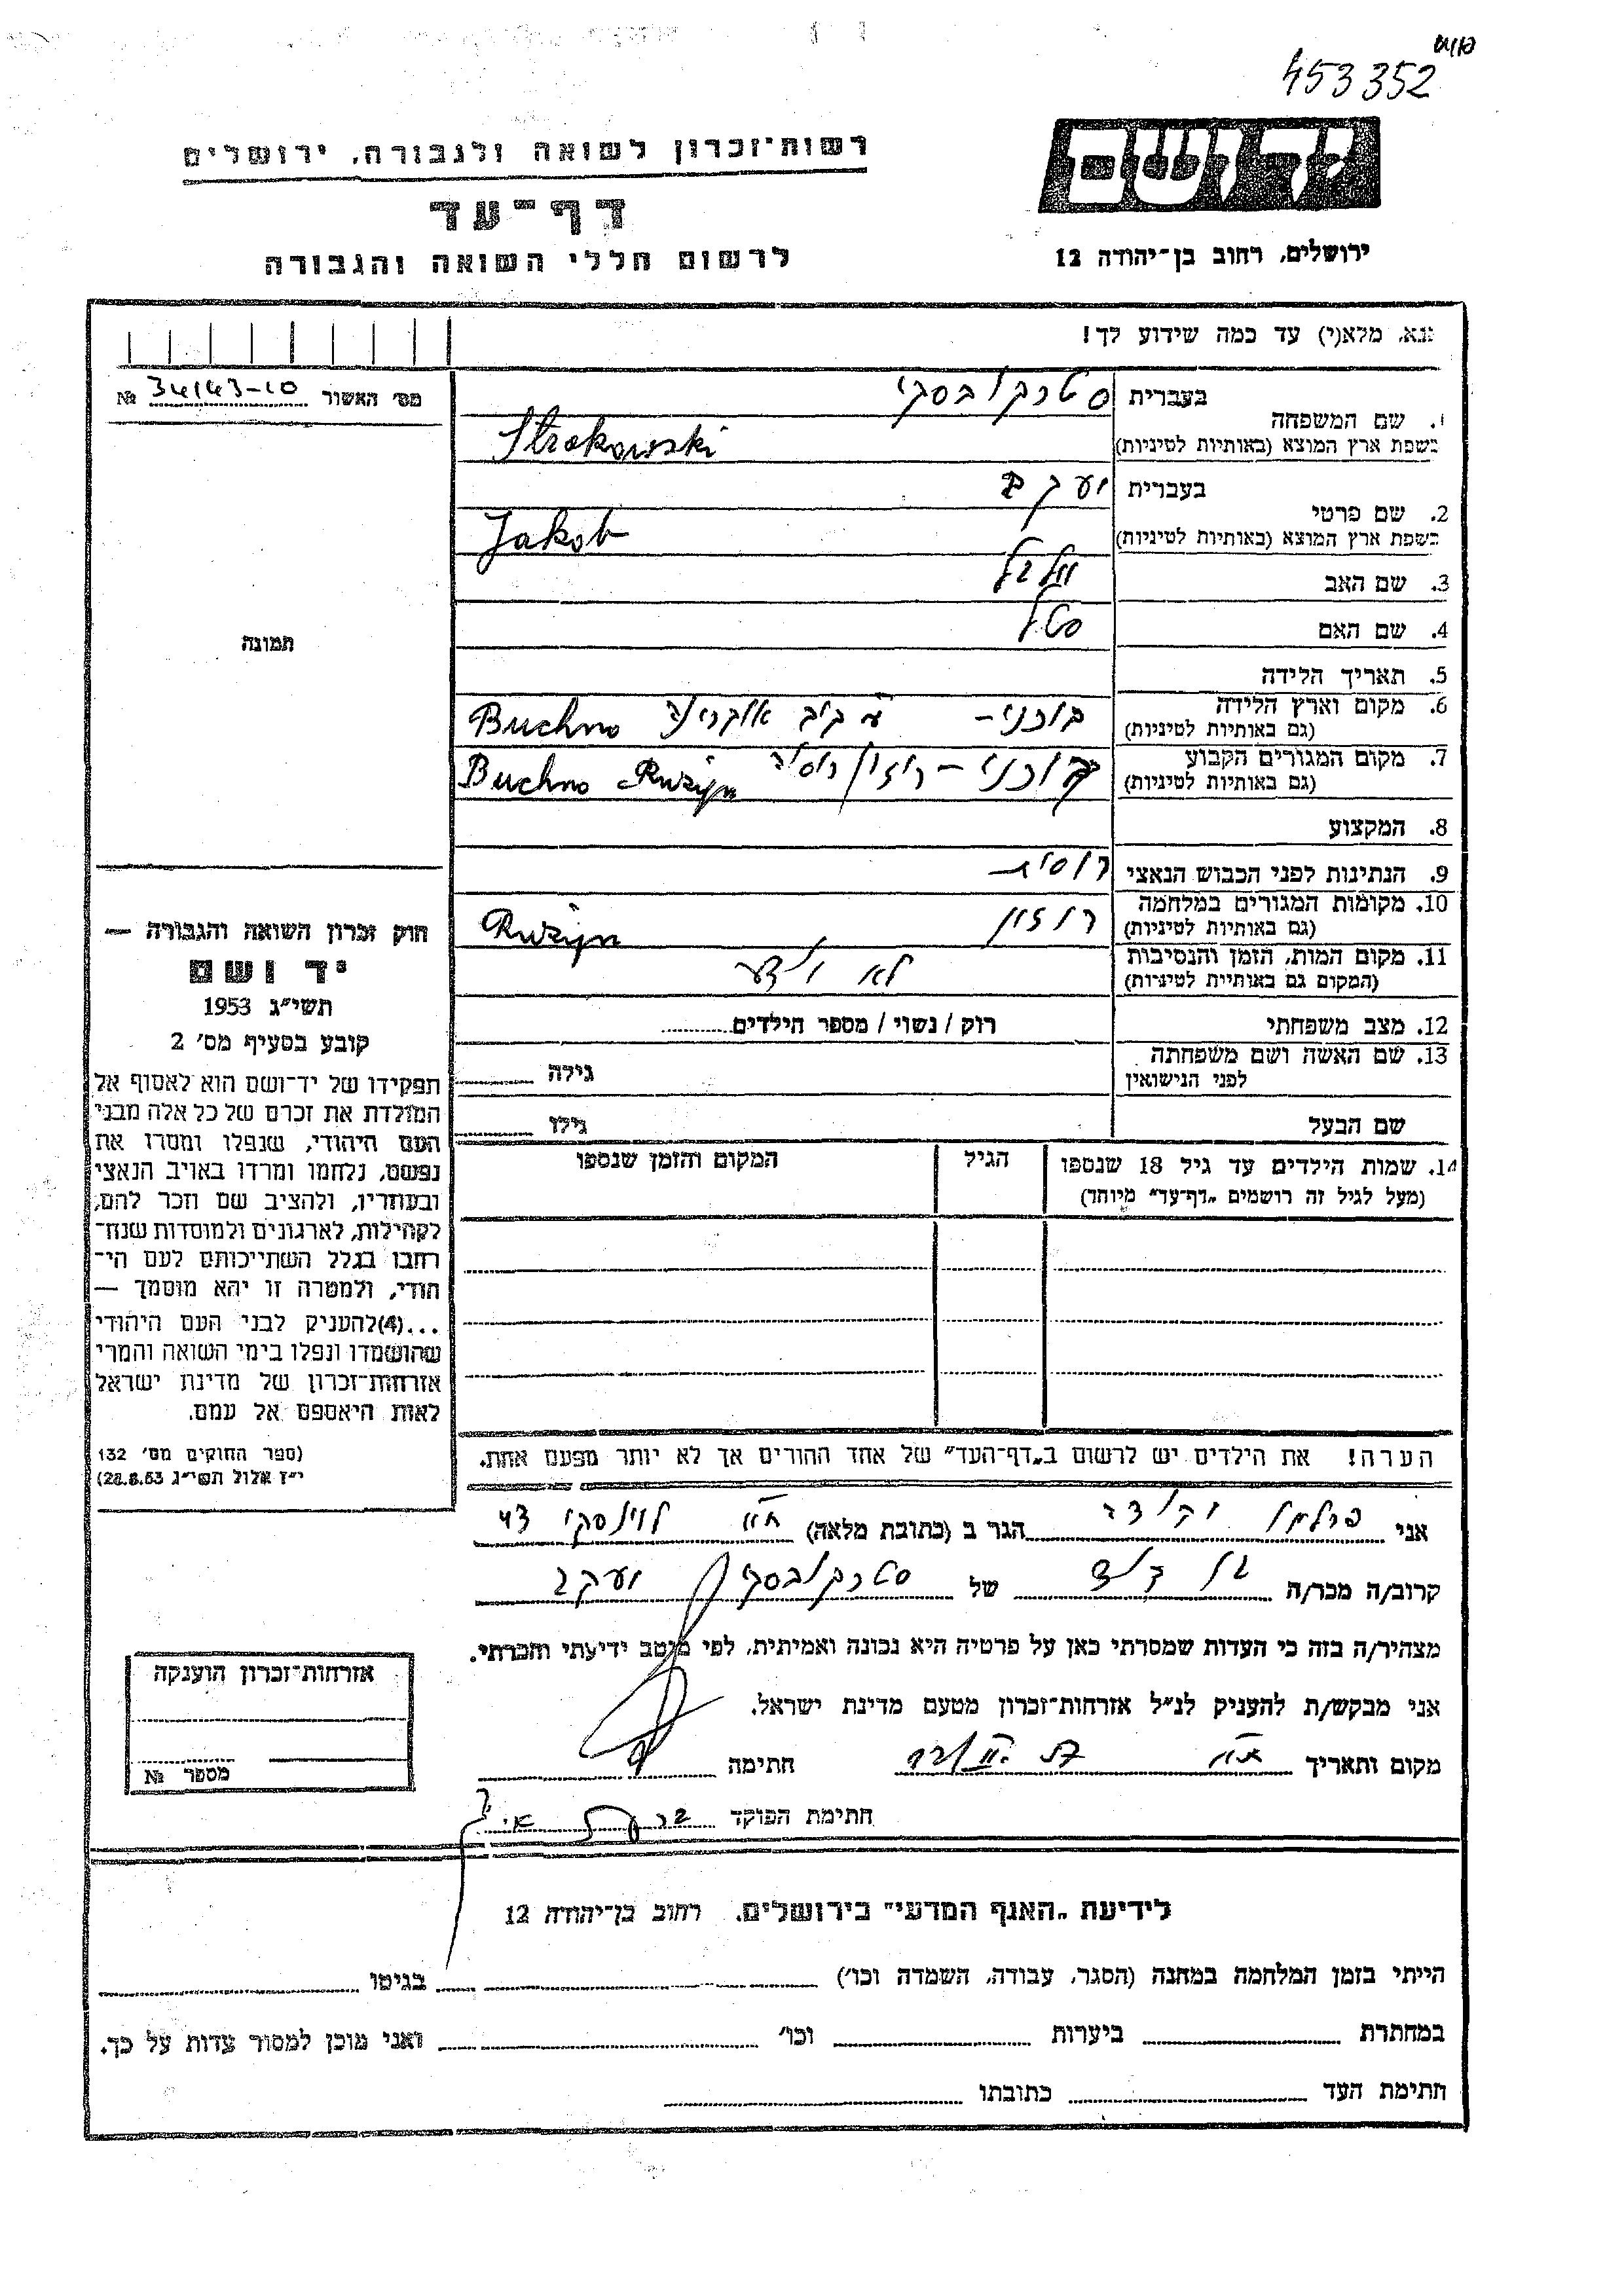 453352
רשות־זכרון לשואה ולגבורה, ירושלים
דף־עד
לרשום חללי השואה והגבורה
יד ושם
ירושלים, רחוב בן־יהודה 12
נא, מלא(י) עד כמה שידוע לך!
מס׳ האשור 34143-10 №
1. שם המשפחה
בעברית סטרקובסקי
בשפת ארץ המוצא (באותיות לטיניות) Strokowski
2. שם פרטי
בעברית יעקב
בשפת ארץ המוצא (באותיות לטיניות) Jakob
3. שם האב
4. שם האם
5. תאריך הלידה
6. מקום וארץ הלידה (גם באותיות לטיניות) בוכני - אוקריינה Buchno
7. מקום המגורים הקבוע (גם באותיות לטיניות) בוכני - רוזין רוסיה Buchno Ruzijn
8. המקצוע
9. הנתינות לפני הכבוש הנאצי רוסית
10. מקומות המגורים במלחמה (גם באותיות לטיניות) רוזין Ruzijn
11. מקום המות, הזמן והנסיבות (המקום גם באותיות לטיניות) לא ידוע
12. מצב משפחתי רוק / נשוי / מספר הילדים
13. שם האשה ושם משפחתה לפני הנישואין גילה
שם הבעל גילו
14. שמות הילדים עד גיל 18 שנספו (מעל לגיל זה רושמים „דף־עד״ מיוחד)
הגיל
המקום והזמן שנספו
תמונה
חוק זכרון השואה והגבורה —
יד ושם
תשי״ג 1953
קובע בסעיף מס׳ 2
תפקידו של יד־ושם הוא לאסוף אל
המולדת את זכרם של כל אלה מבני
העם היהודי, שנפלו ומסרו את
נפשם, נלחמו ומרדו באויב הנאצי
ובעוזריו, ולהציב שם וזכר להם,
לקהילות, לארגונים ולמוסדות שנח־
רבו בגלל השתייכותם לעם הי־
הודי, ולמטרה זו יהא מוסמך —
...(4)להעניק לבני העם היהודי
שהושמדו ונפלו בימי השואה והמרי
אזרחות־זכרון של מדינת ישראל
לאות היאספם אל עמם.
(ספר החוקים מס׳ 132
י״ז אלול תשי״ג 28.8.53)
הערה! את הילדים יש לרשום ב„דף־העד״ של אחד ההורים אך לא יותר מפעם אחת.
אני פרלמן הגר ב (כתובת מלאה) ת״א לוינסקי 43
קרוב/ה מכר/ה בן דוד של סטרקובסקי יעקב
מצהיר/ה בזה כי העדות שמסרתי כאן על פרטיה היא נכונה ואמיתית, לפי מיטב ידיעתי והכרתי.
אני מבקש/ת להעניק לנ״ל אזרחות־זכרון מטעם מדינת ישראל.
מקום ותאריך ת״א חתימה
חתימת הפוקד
אזרחות־זכרון הוענקה
מספר №
לידיעת „האגף המדעי״ בירושלים, רחוב בן־יהודה 12
הייתי בזמן המלחמה במחנה (הסגר, עבודה, השמדה וכו׳) בגיטו
במחתרת ביערות וכו׳ ואני מוכן למסור עדות על כך.
חתימת העד כתובתו